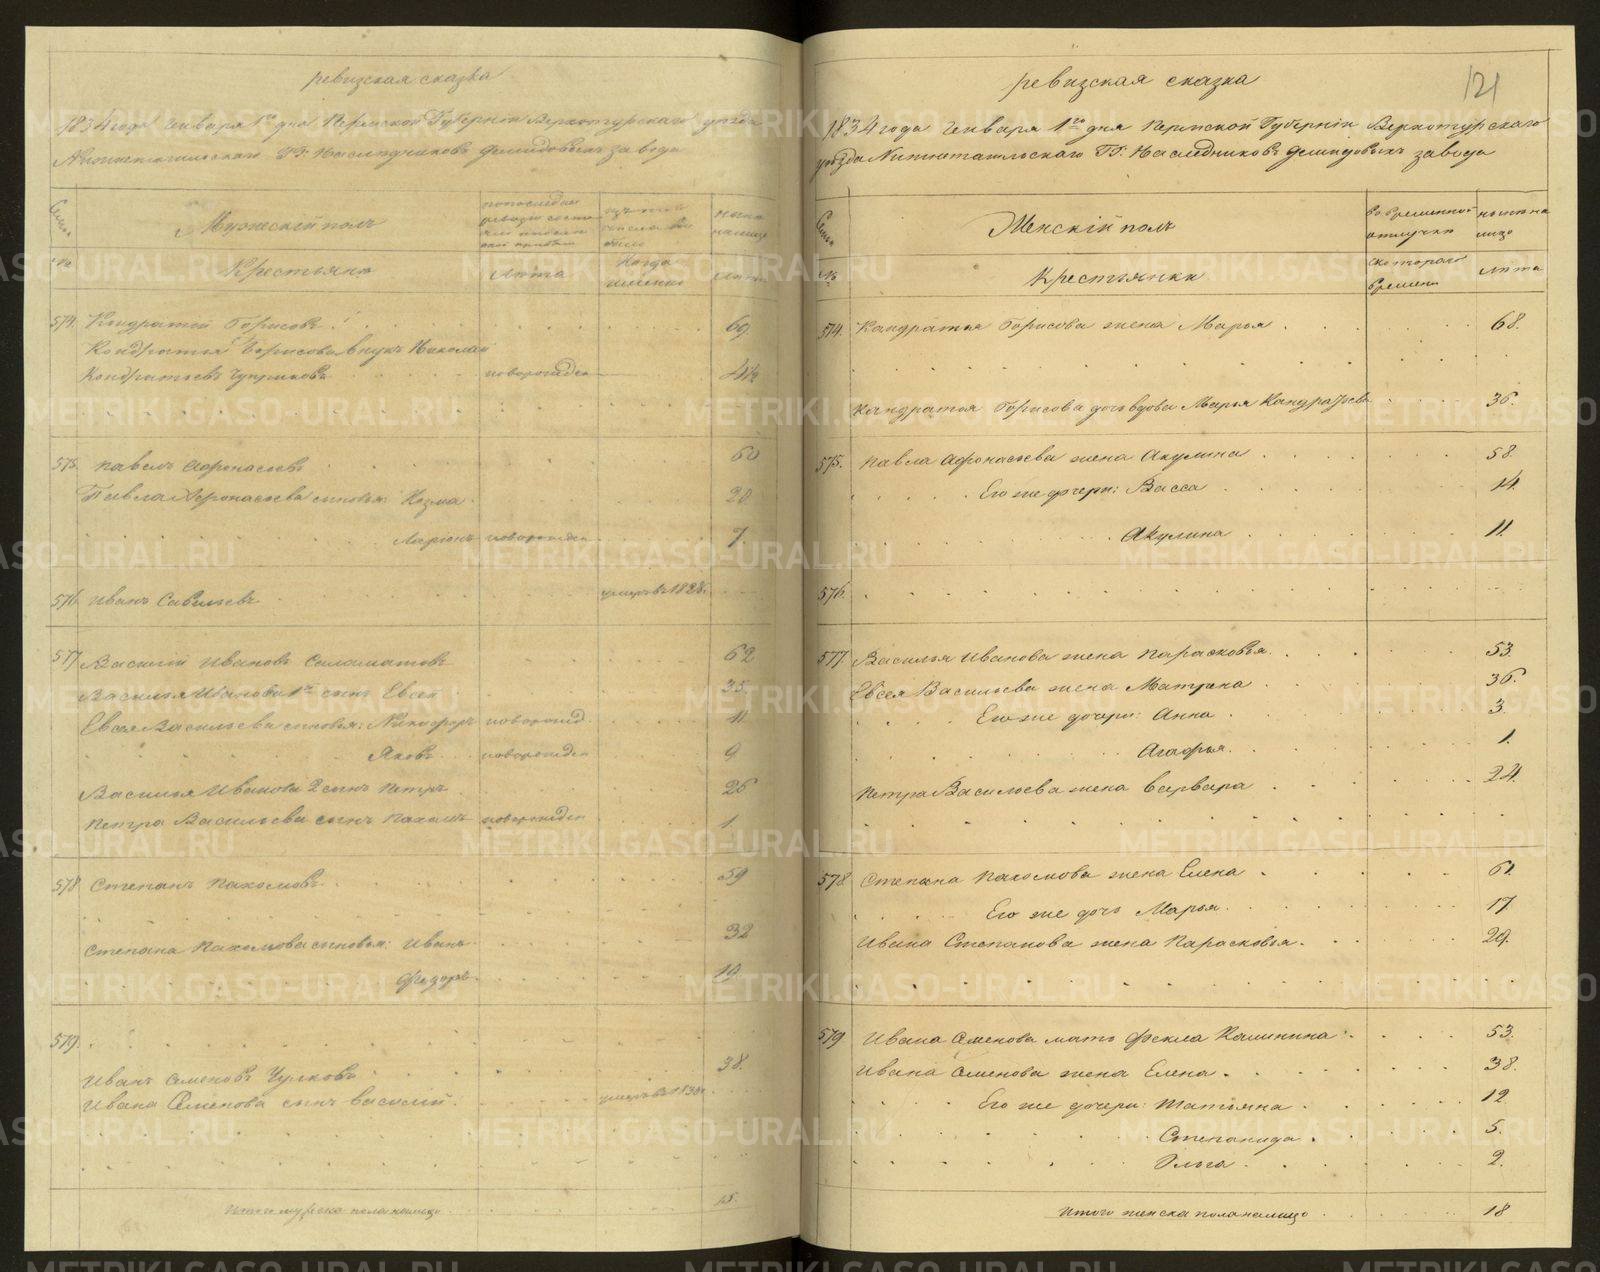 ревизская сказка
1834 года Генваря 1го дня Пермской Губернiи Верхотурскаго уезда
Нижнетагильскаго ГГ: Наследниковъ Демидовыхъ завода
Мужескiй полъ
Крестьяне
Лета
Когда именно
Лета
574. Кондратiй Борисовъ 69.
Кондратья Борисова внукъ Николай
Кондратьевъ новорожден 4½
575. Павелъ Афонасьевъ 60
Павла Афонасьева сыновья: Козма 20.
Ларiонъ новорожден 7.
576. Иванъ Савельевъ умеръ въ 1828.
577. Василiй Ивановъ Саламатовъ 62
Василья Иванова 1й сынъ Евсей 35.
Евсея Васильева сыновья: Никифоръ новорожд. 11
Яковъ новорожден 9
Василья Иванова 2 сынъ Петръ 26
Петра Васильева сынъ Пахомъ новорожден 1
578. Степанъ Пахомовъ 59
Степана Пахомова сыновья: Иванъ 32
Федоръ 19.
579.
Иванъ Семеновъ Чулковъ 38.
Ивана Семенова сынъ Василiй.
Итого мужска пола налицо 15.
121
ревизская сказка
1834 года Генваря 1го дня Пермской Губернiи Верхотурскаго
уезда Нижнетагильскаго ГГ: Наследниковъ Демидовыхъ завода
Семьи
Женскiй полъ
Во временной отлучке
ныне на лицо
№
Крестьянки
съ котораго времени
Лета
574. Кандратья Борисова жена Марья 68.
Кандратья Борисова дочь вдова Марья Кандратьева 36.
575. Павла Афонасьева жена Акулина 58.
Его же дочери: Васса 14.
Акулина 11.
576.
577. Василья Иванова жена Парасковья 53.
Евсея Васильева жена Матрена 36.
Его же дочери: Анна 3.
Агафья 1.
Петра Васильева жена Варвара 24.
578 Степана Пахомова жена Елена 61.
Его же дочь Марья 17.
Ивана Степанова жена Парасковья. 29.
579 Ивана Семенова мать Фекла Калинина 53.
Ивана Семенова жена Елена 38.
Его же дочери: Татьяна 12
Степанида 5.
Ольга 2.
Итого женска пола налицо 18
METRIKI.GASO-URAL.RU